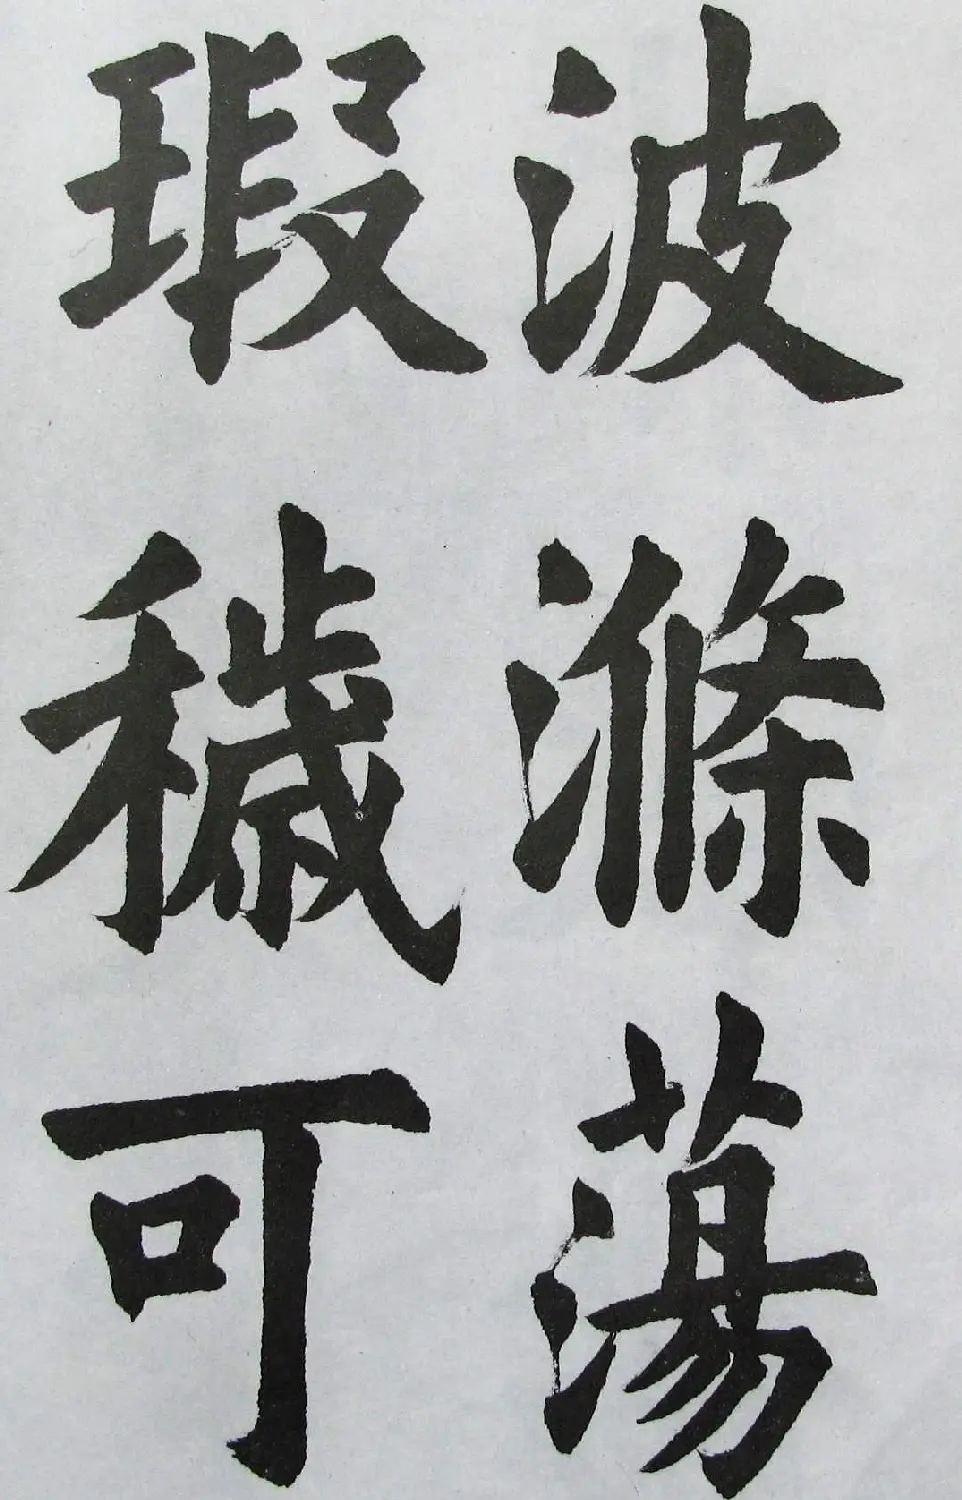 波滌蕩
瑕穢可